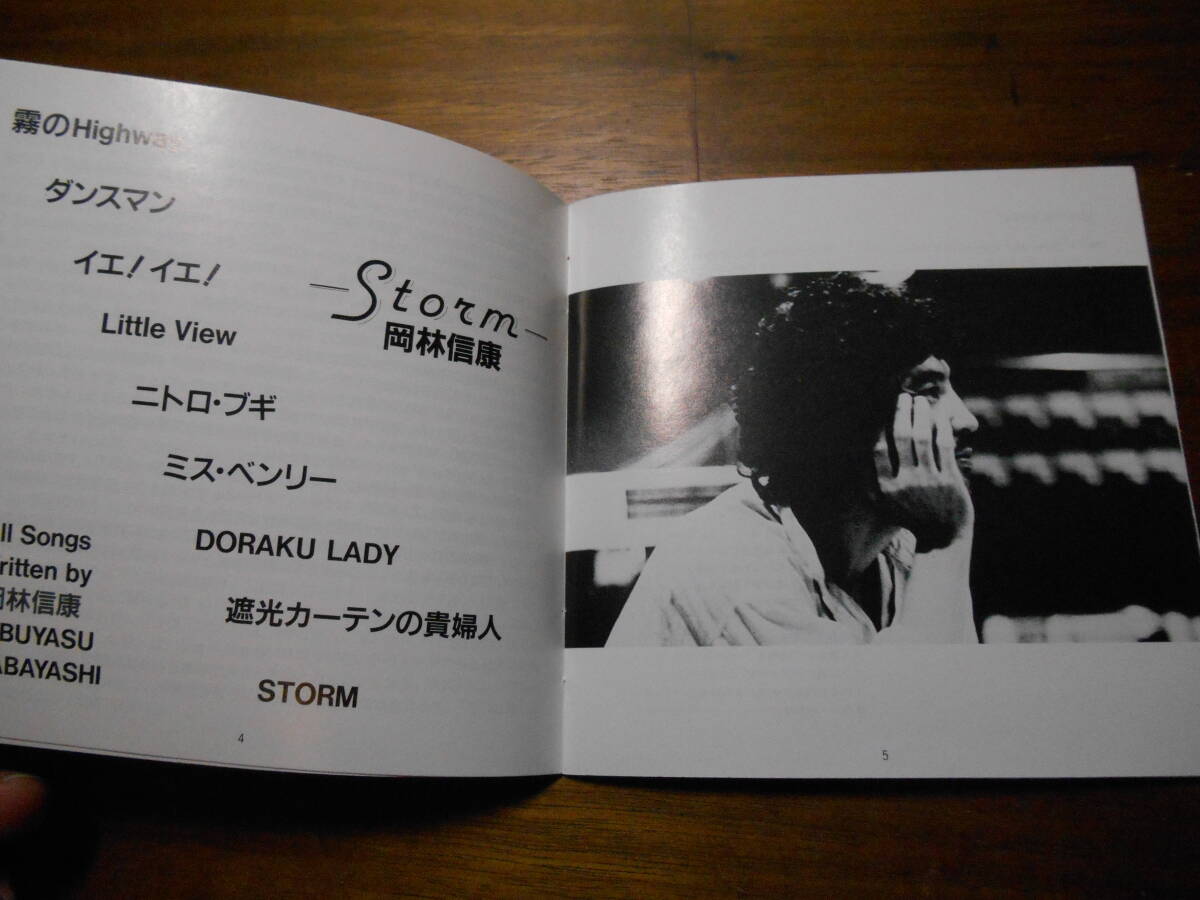 霧のHighway
ダンスマン
イエ!イエ!
Little View
ニトロ・ブギ
ミス・ベンリー
DORAKU LADY
遮光カーテンの貴婦人
STORM
Storm
岡林信康
ll Songs
ritten by
岡林信康
BUYASU
ABAYASHI
4
5